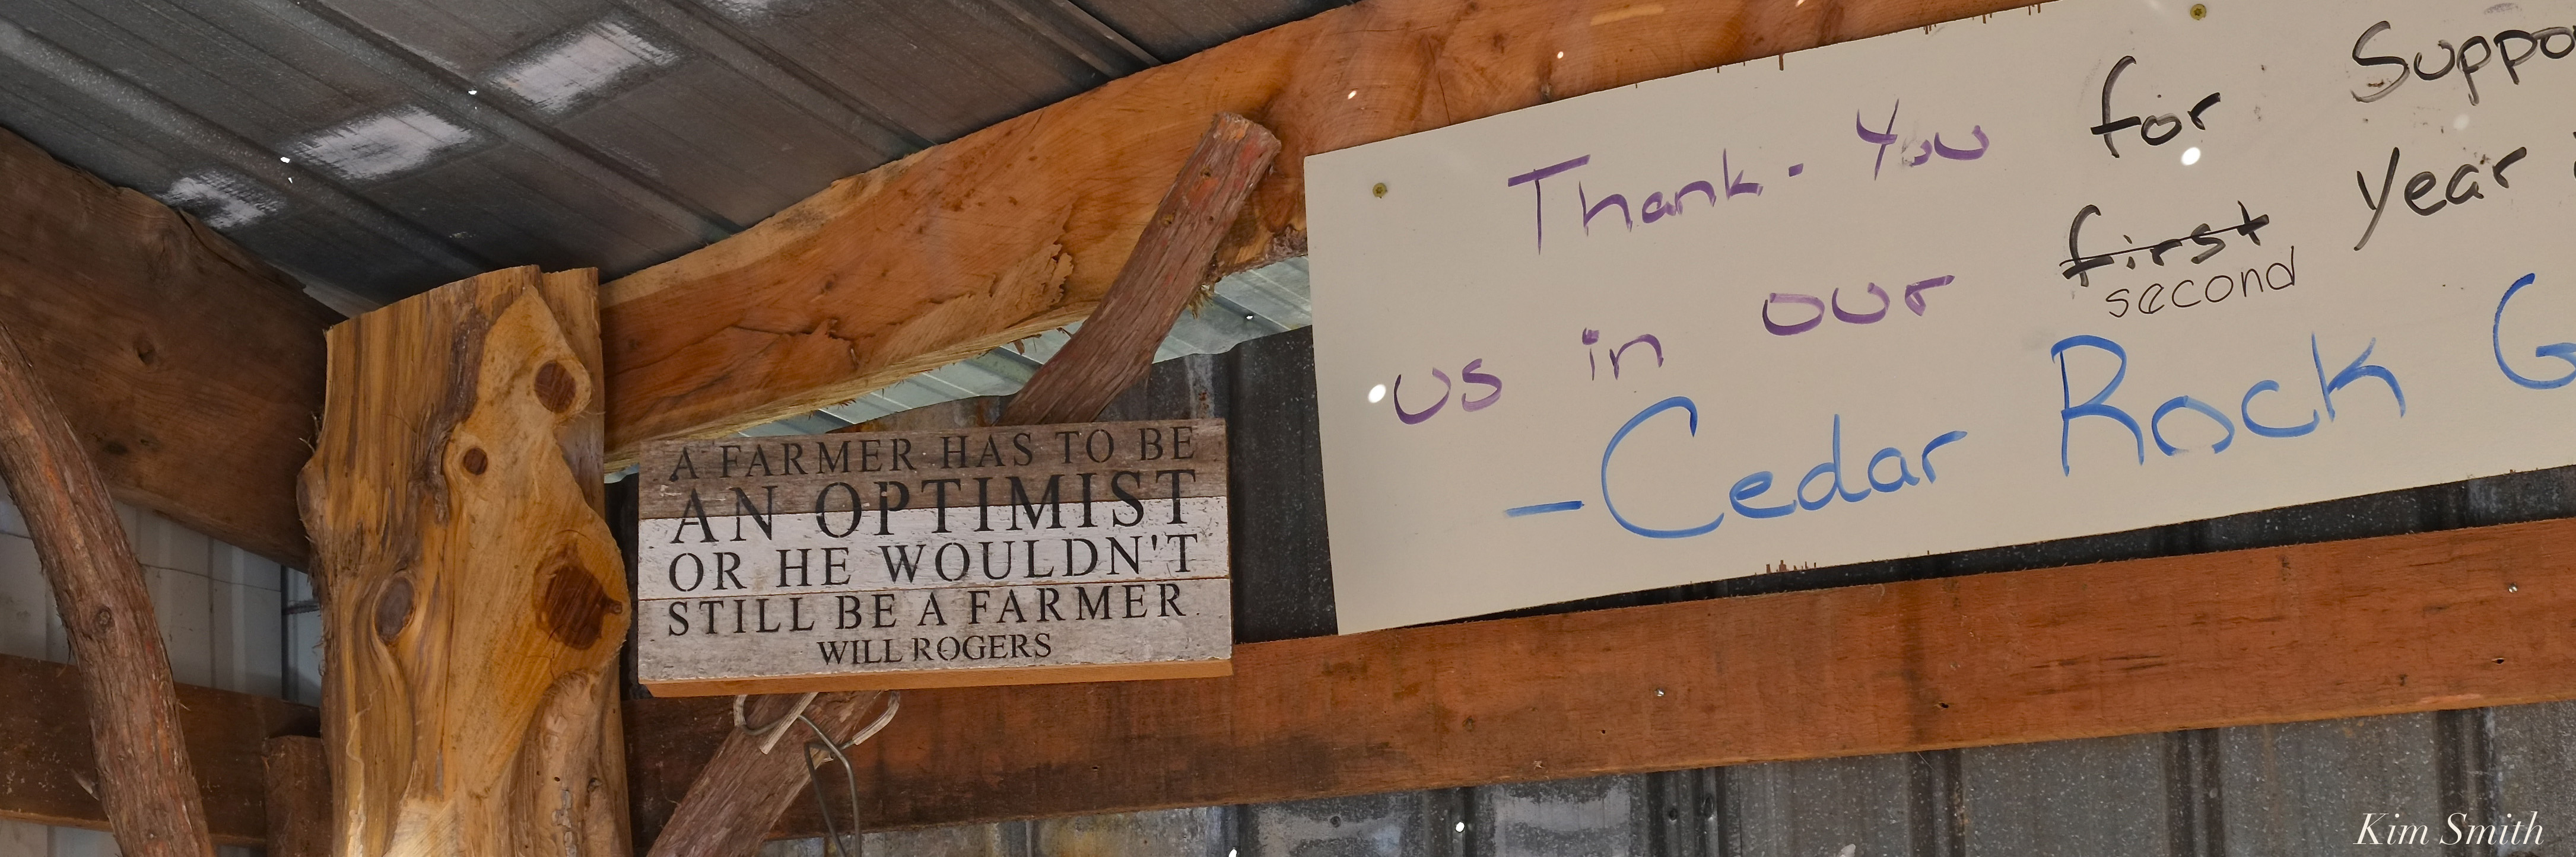 A FARMER HAS TO BE
AN OPTIMIST
OR HE WOULDN'T
STILL BE A FARMER
WILL ROGERS
Thank-You for Suppo
us in our first year
second
-Cedar Rock G
Kim Smith